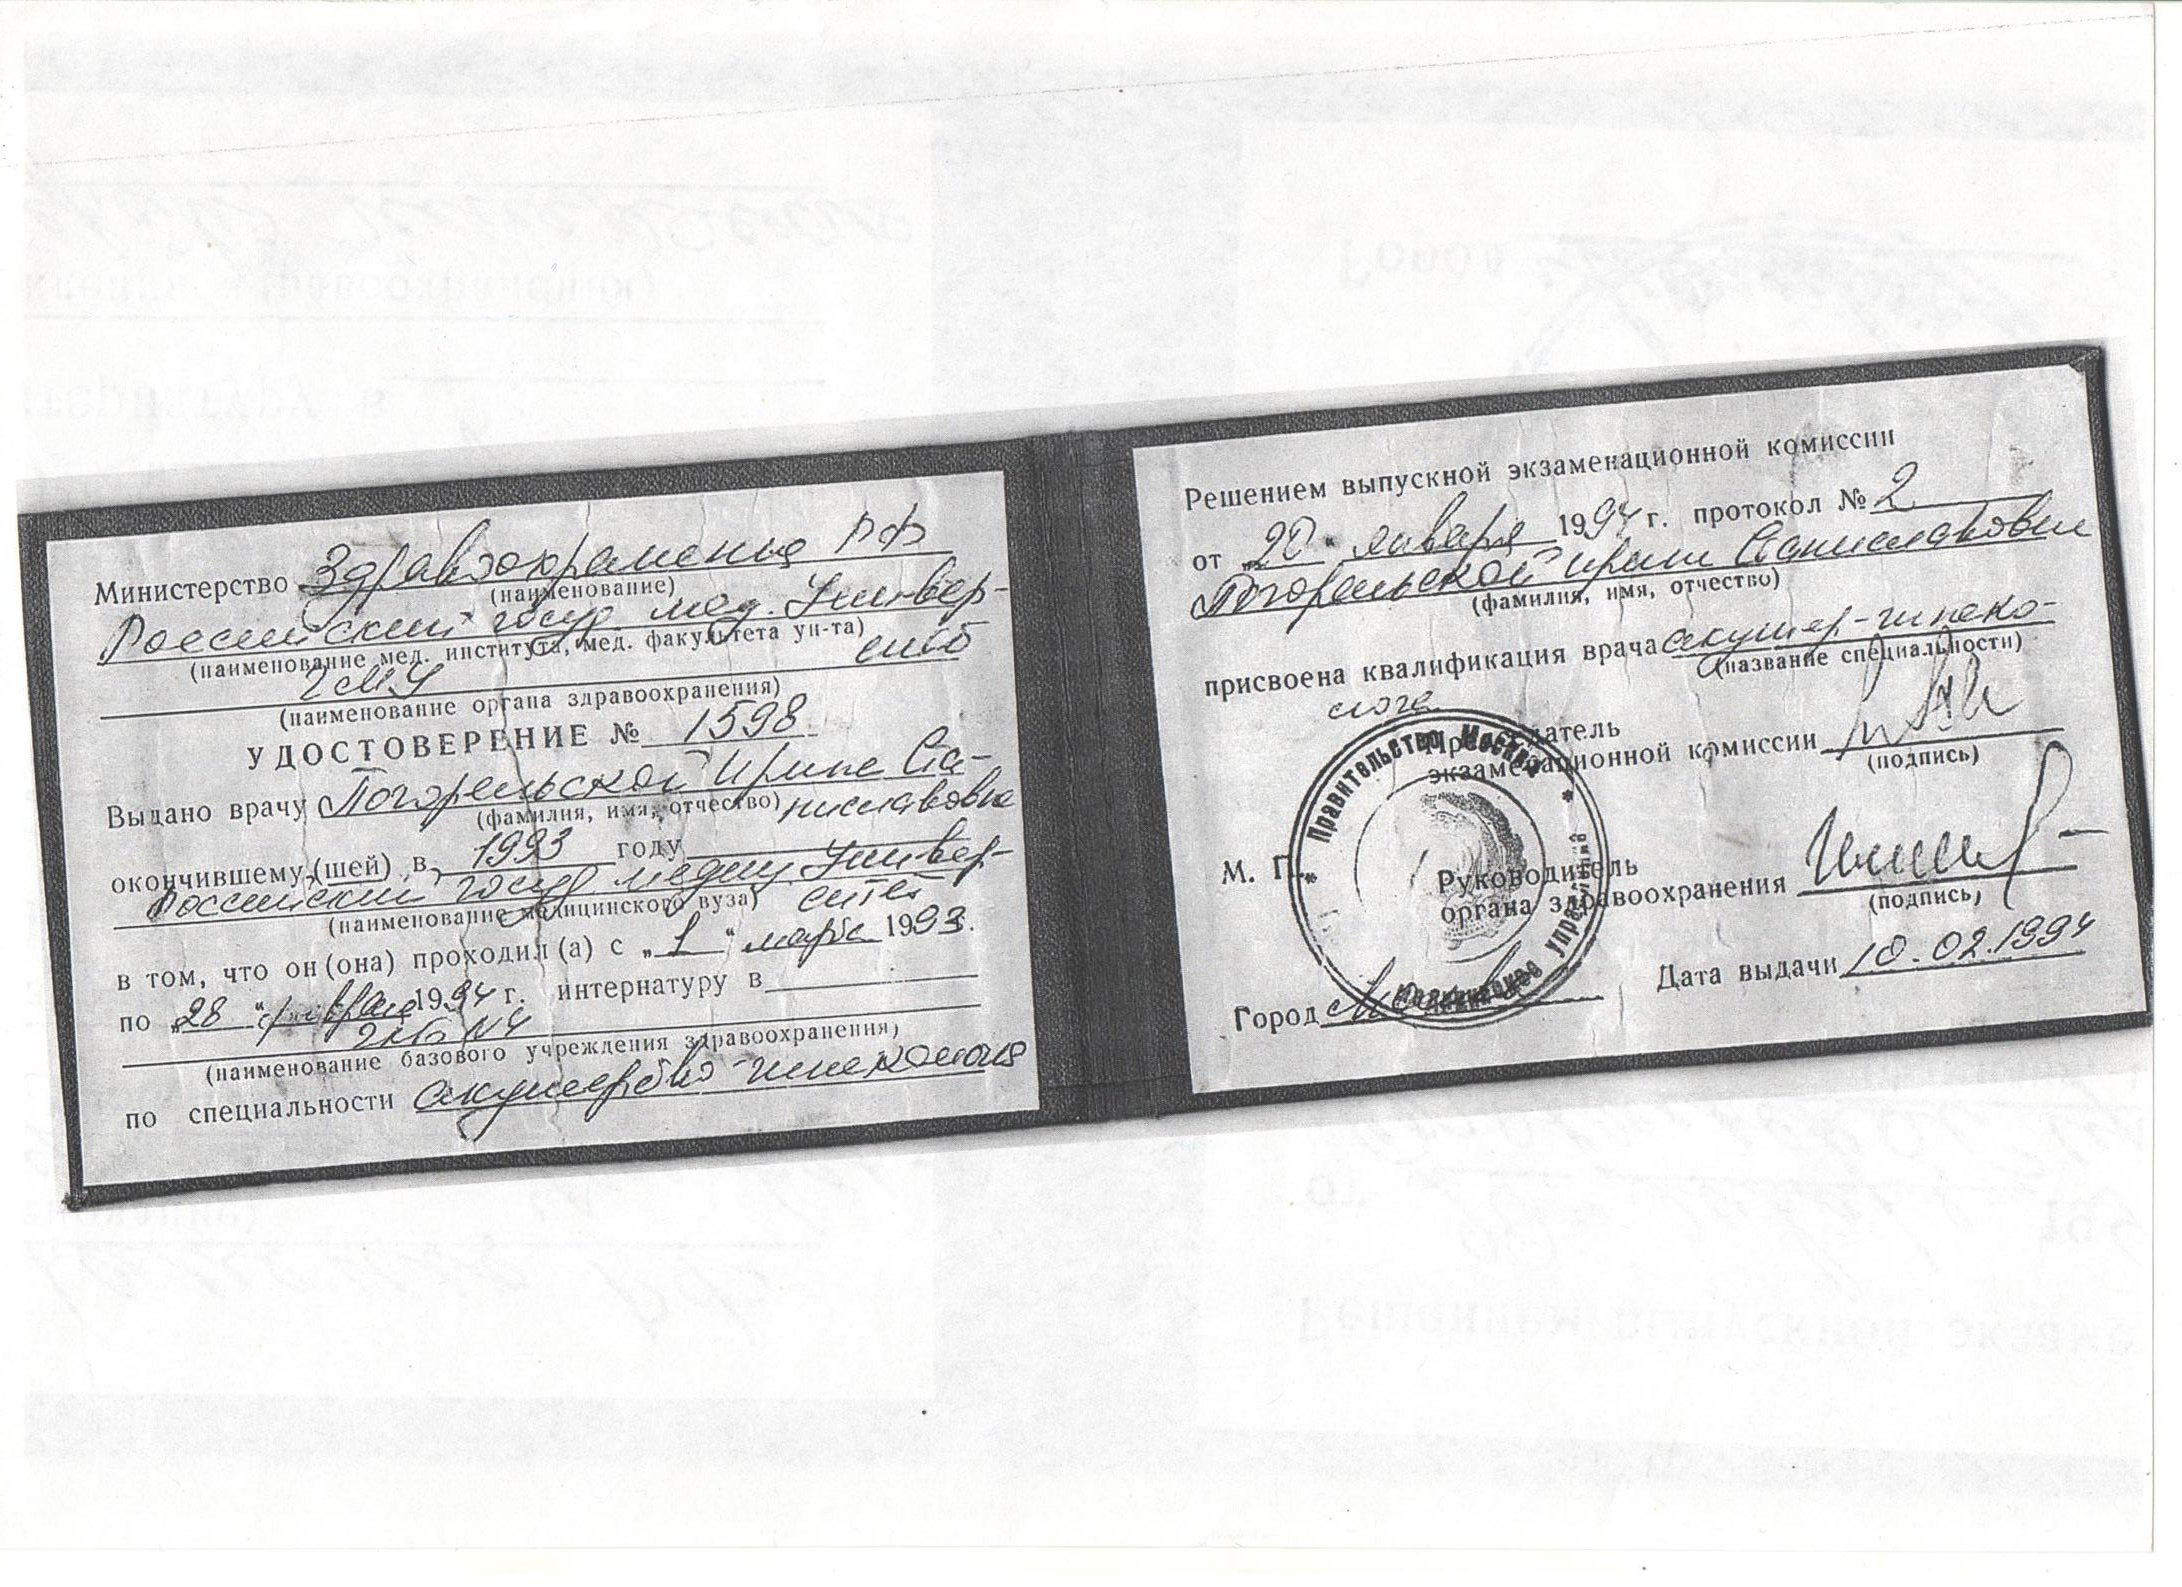 Министерство Здравоохранения РФ
(наименование)
Российский госуд. мед. Универ-
(наименование мед. института, мед. факультета ун-та)
ГМУ
(наименование органа здравоохранения)
УДОСТОВЕРЕНИЕ № 1598
Выдано врачу Погорельской Ирине Ста-
(фамилия, имя, отчество) ниславовне
окончившему (шей) в 1993 году
Российский госуд медиц Универ-
(наименование медицинского вуза) ситет
в том, что он (она) проходил (а) с „1" марта 1993.
по „28" февраля 1994 г. интернатуру в
ГКБ №4
(наименование базового учреждения здравоохранения)
по специальности акушерство-гинекология
Решением выпускной экзаменационной комиссии
от „20" января 1994 г. протокол № 2
Погорельской Ирине Станиславовне
(фамилия, имя, отчество)
присвоена квалификация врача акушер-гинеко-
(название специальности)
лога
Председатель
экзаменационной комиссии
(подпись)
М. П.
Руководитель
органа здравоохранения
(подпись)
Город Москва
Дата выдачи 10.02.1994
Правительство Москвы
управление